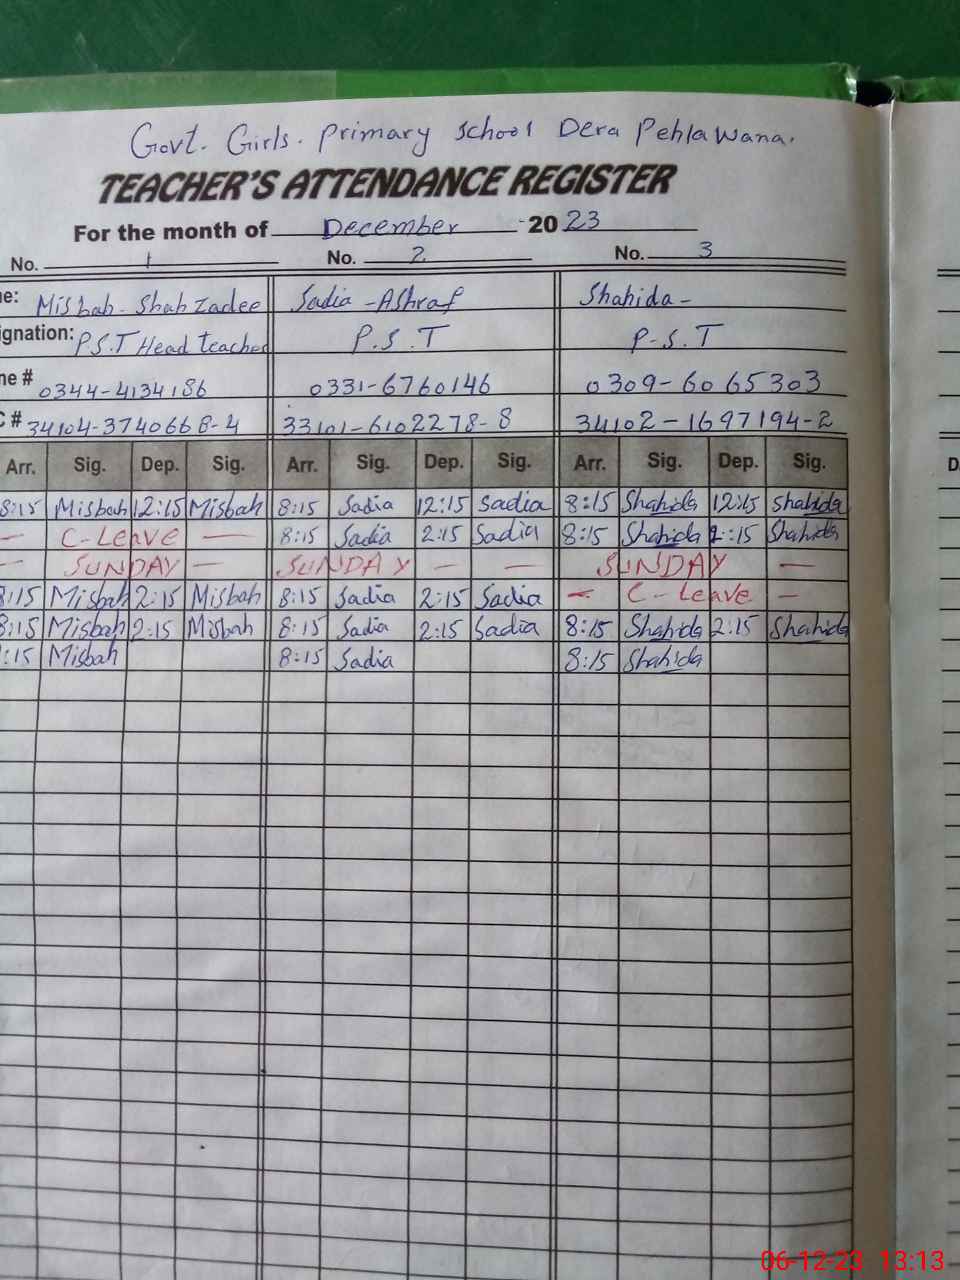 Govt. Girls. Primary school Dera Pehlawana.
TEACHER'S ATTENDANCE REGISTER
For the month of December 2023
No. 1 No. 2 No. 3
me: Misbah-Shahzadee Sadia-Ashraf Shahida-
ignation: P.S.T Head teacher P.S.T P-S.T
ne # 0344-4134186 0331-6760146 0309-6065303
C # 34104-3740668-4 33101-6102278-8 34102-1697194-2
Arr. Sig. Dep. Sig. Arr. Sig. Dep. Sig. Arr. Sig. Dep. Sig.
8:15 Misbah 12:15 Misbah 8:15 Sadia 12:15 Sadia 8:15 Shahida 12:15 Shahida
— C-Leave — 8:15 Sadia 2:15 Sadia 8:15 Shahida 2:15 Shahida
— SUNDAY — SUNDAY — — SUNDAY —
8:15 Misbah 2:15 Misbah 8:15 Sadia 2:15 Sadia — C-Leave —
8:15 Misbah 2:15 Misbah 8:15 Sadia 2:15 Sadia 8:15 Shahida 2:15 Shahida
:15 Misbah 8:15 Sadia 8:15 Shahida
06-12-23 13:13